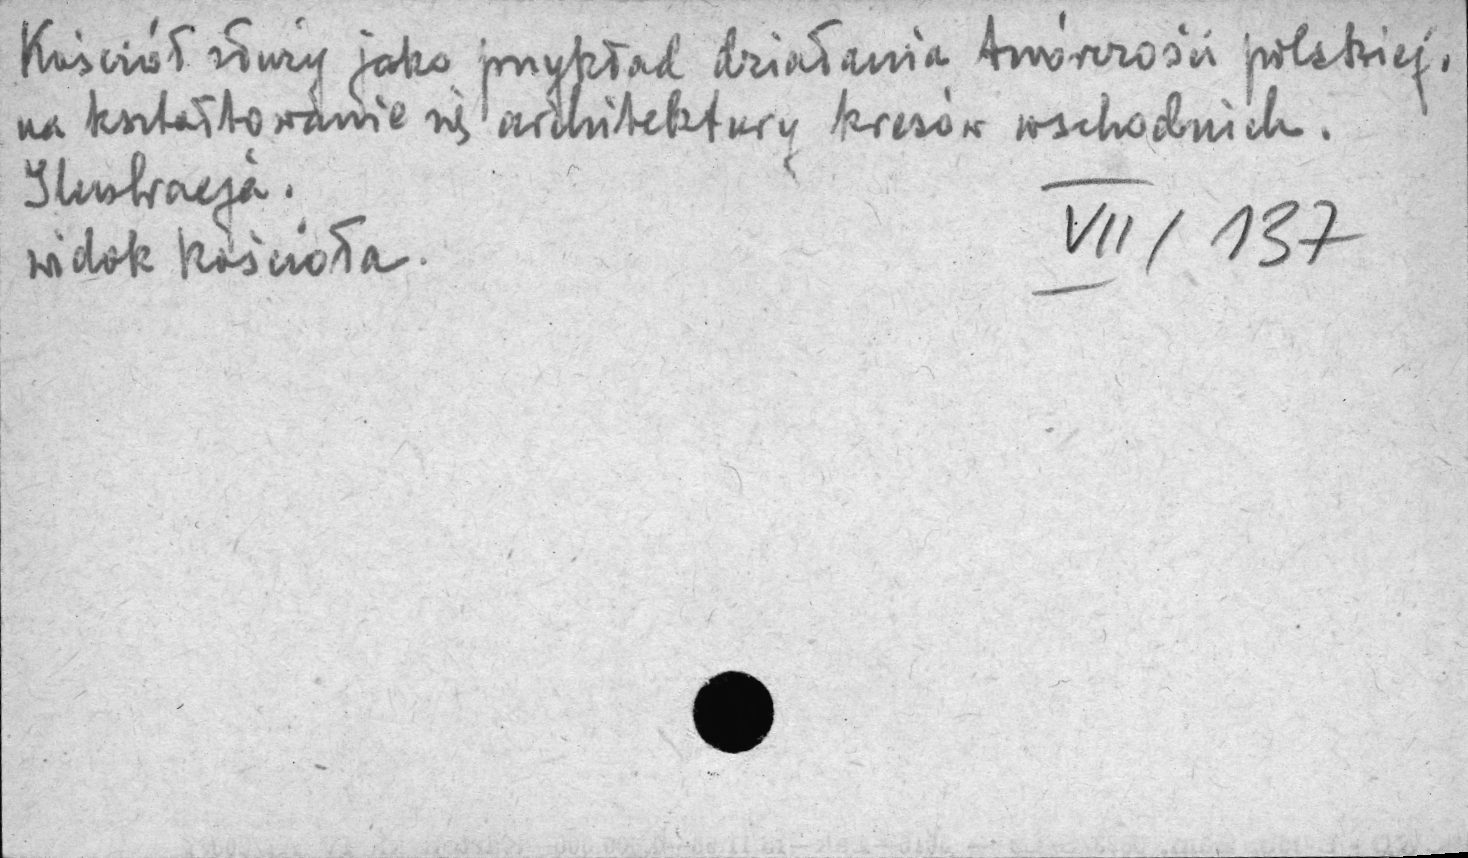 Kościół służy jako przykład działania twórczości polskiej.
na kształtowanie się architektury kresów wschodnich.
Ilustracja.
widok kościoła.
VII / 137